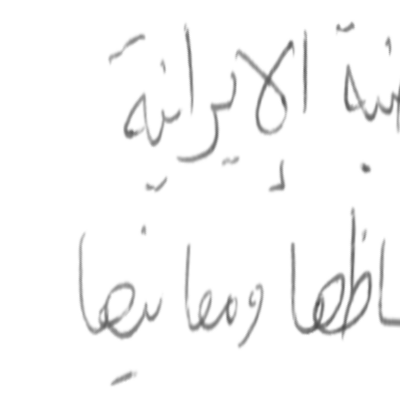 الإيرانية
اظها ومعانيها